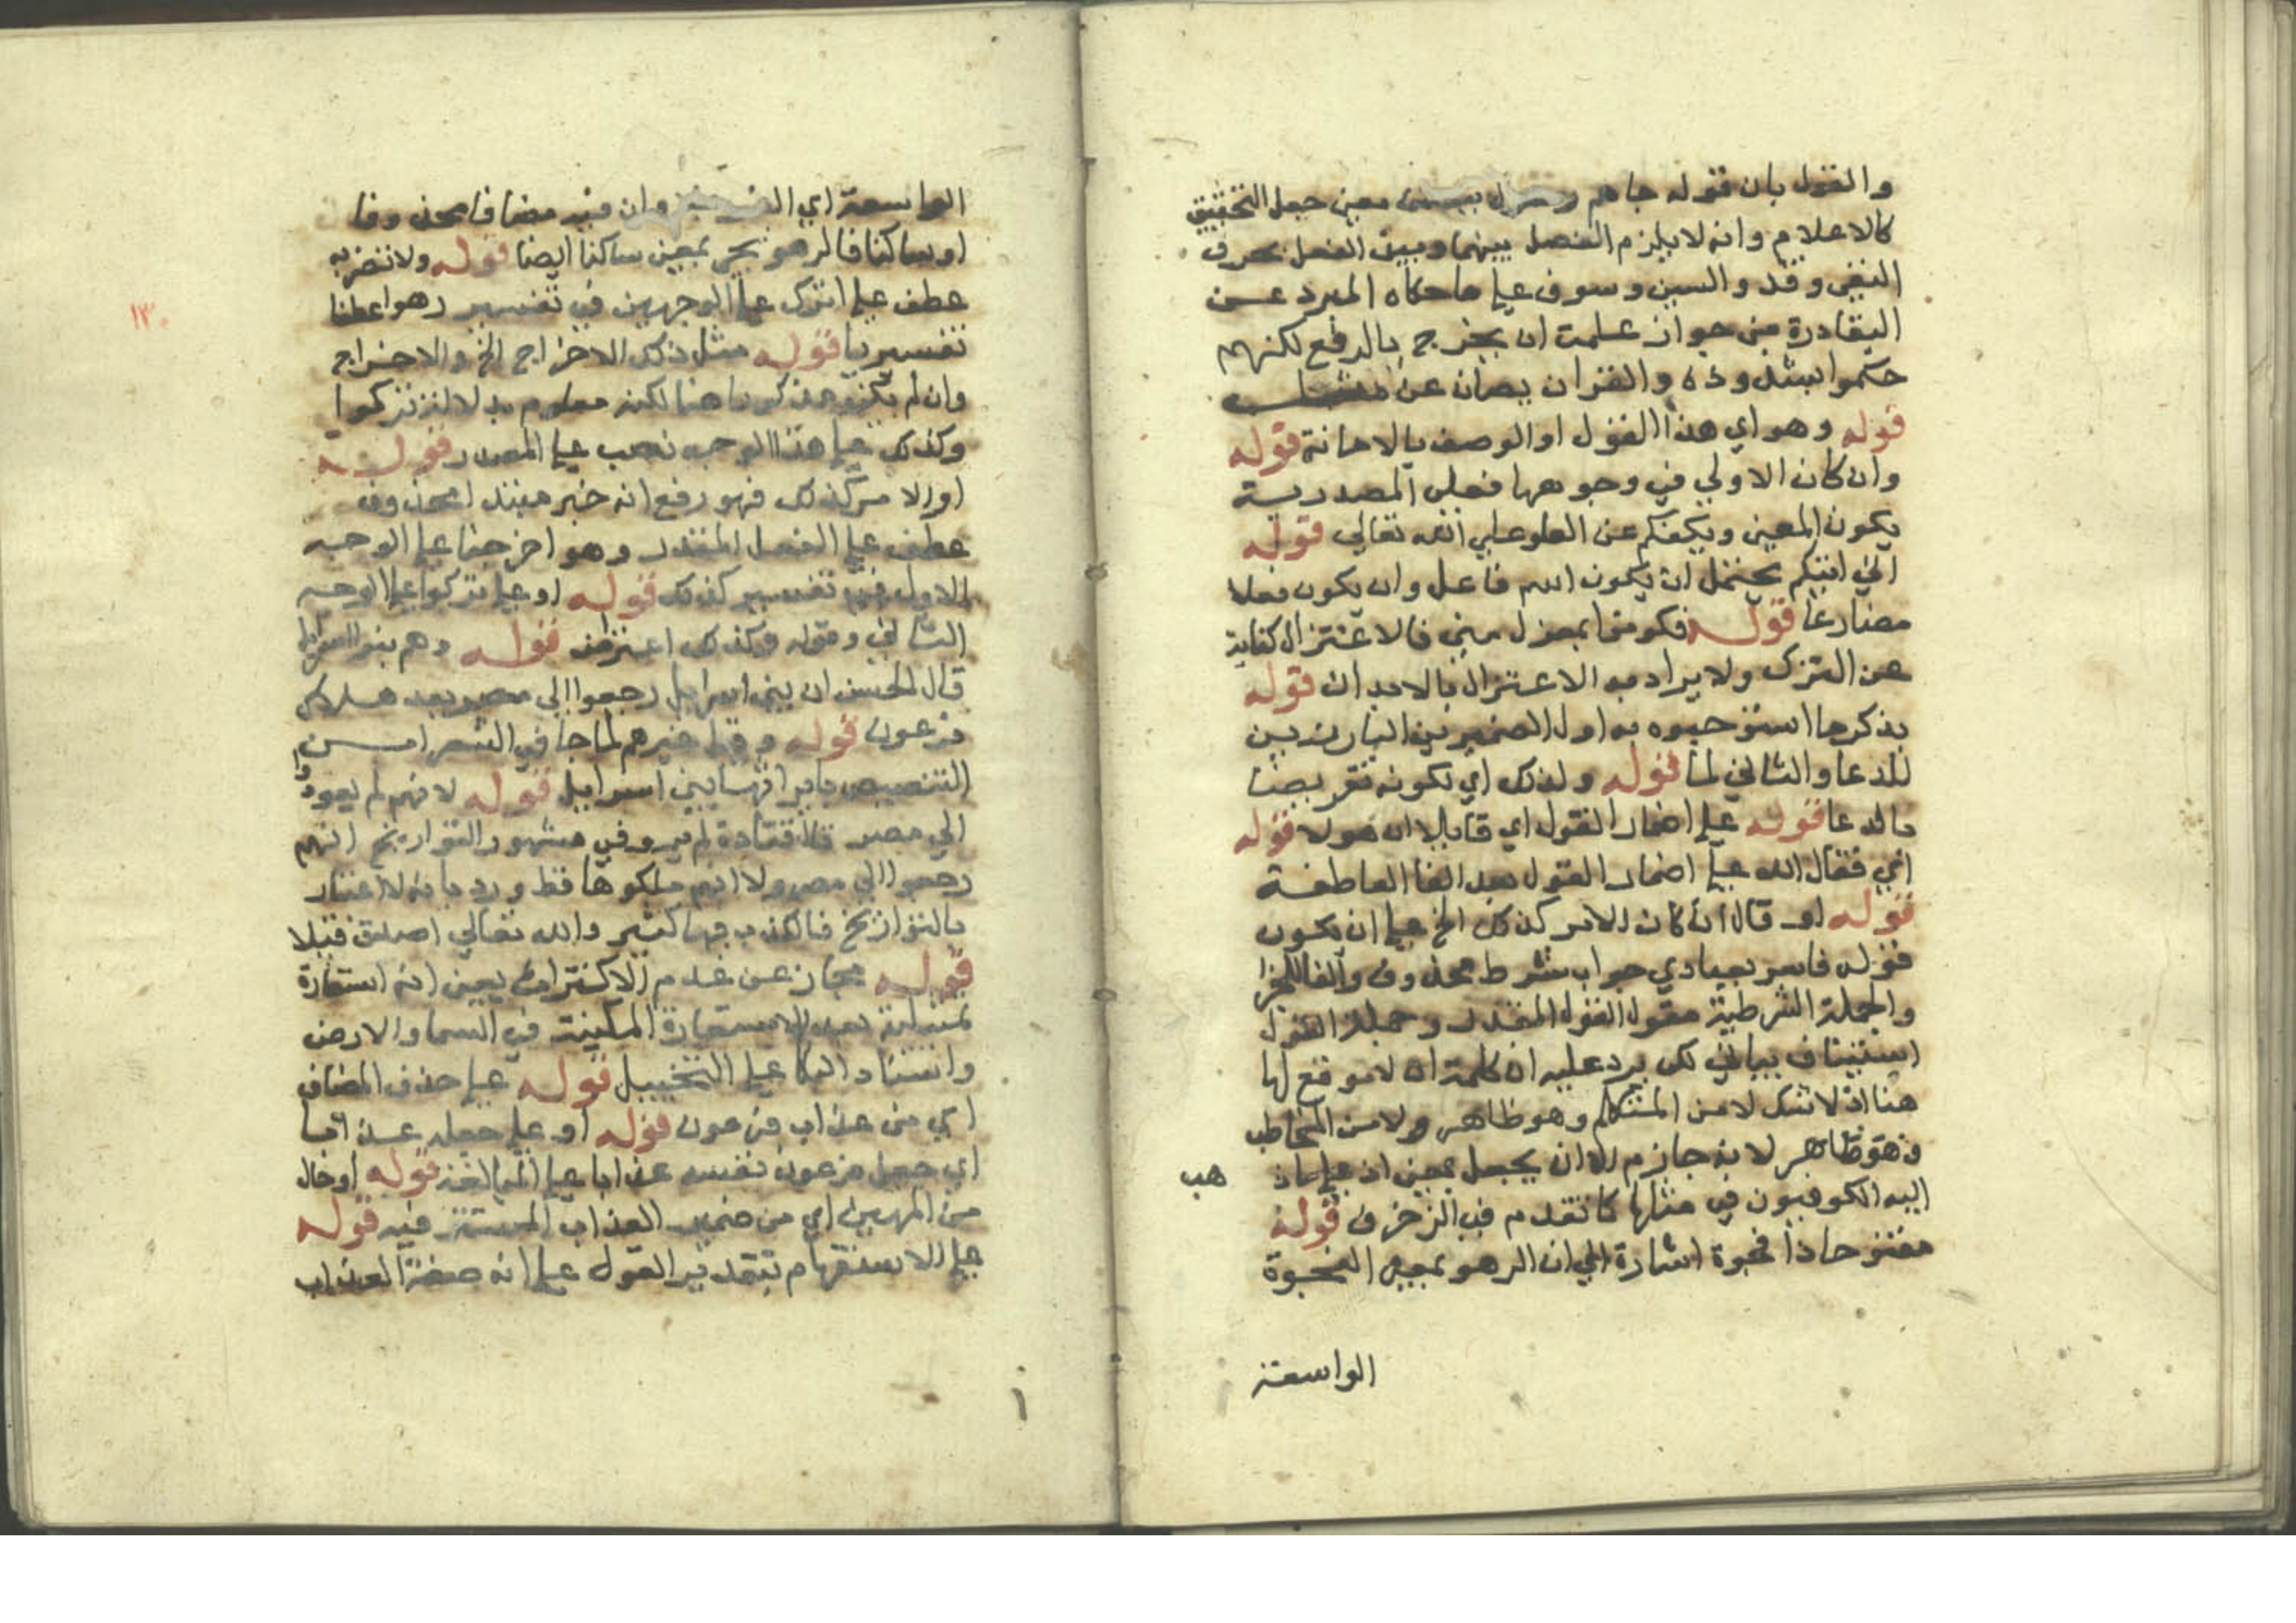 والقول بان قوله جاهم رسول معنى جعل التحقيق
كالاعلام وانه لا يلزم الفصل بينهما وبين الفعل بحرف
النفي وقد والسين وسوف على ما حكاه المبرد عن
البقاددة من جواز علمت ان يخرج بالرفع لكنهم
حكموا بشذوذه والقران يصان عن مثله
قوله وهو اي هذا القول او الوصف بالامانة قوله
وان كان الاولى في وجوهها فعلى المصدرية
يكون المعنى ويكفكم عن العلو على الله تعالى قوله
اني اتيكم يحتمل ان يكون اسم فاعل وان يكون فعلا
مضارعا قوله فكونوا بمعزل مني فالاعتزال كناية
عن الترك ولا يراد به الاعتزال بالابدان قوله
بذكر ما استوجبوه به اول الضميرين البارزين
للدعا والثاني لما قوله ولذلك اي لكونه تعريضا
بالدعا قوله على اضمار القول اي قايلا ان هولا قوله
اي فقال الله على اضمار القول بعد الفا العاطفة
قوله او قال ان كان الامر كذلك الخ على ان يكون
قوله فاسر بعبادي جواب شرط محذوف والفا للجزا
والجملة الشرطية مقول القول المقدر وجملة القول
استيناف بياني لكن يرد عليه ان كلمة ان لا موقع لها
هنا اذ لا شك لا من المتكلم وهو ظاهر ولا من المخاطب
وهو ظاهر لانه جازم الا ان يجعل بمعنى اذ على ما ذ
هب
اليه الكوفيون في مثلها كما تقدم في الزخرف قوله
مفتوحا ذا فجوة اشارة الى ان الرهو بمعنى الفجوة
الواسعة
الواسعة اي وان فيه مضافا محذوفا
او ساكنا فالرهو بمعنى ساكنا ايضا قوله ولا تضربه
عطف على اترك على الوجهين في تفسير رهوا عطفا
تفسيريا قوله مثل ذلك الاخراج الخ والاخراج
وان لم يكن مذكورا هنا لكنه معلوم بدلالة تركوا
وكذلك على هذا الوجه نصب على المصدر قوله
او الامر كذلك فهو رفع انه خبر مبتدا محذوف
عطف على الفعل المقدر وهو اخرجنا على الوجه
الاول في تفسير كذلك قوله او على تركوا على الوجه
الثاني وقوله وكذلك اعتراض قوله وهم بنو اسرايل
قال الحسن ان بني اسرايل رجعوا الى مصر بعد هلاك
فرعون قوله وقيل غيرهم لما جا في الشعرا من
التنصيص بايراثها بني اسرايل قوله لانهم لم يعودوا
الى مصر قال قتادة لم يرو في مشهور التواريخ انهم
رجعوا الى مصر ولا انهم ملكوها قط ورد بانه لا اعتبار
بالتواريخ فالكذب فيها كثير والله تعالى اصدق قيلا
قوله مجاز عن عدم الاكتراث يعني انه استعارة
تمثيلية بعد الاستعارة المكنية في السما والارض
واسناد البكا على التخييل قوله على حذف المضاف
اي من عذاب فرعون قوله او على جعله عذابا
اي جعل فرعون نفسه عذابا على المبالغة قوله او حال
من المهين اي من ضمير العذاب المستتر فيه قوله
على الاستفهام بتقدير القول على انه صفة العذاب
١٣٠